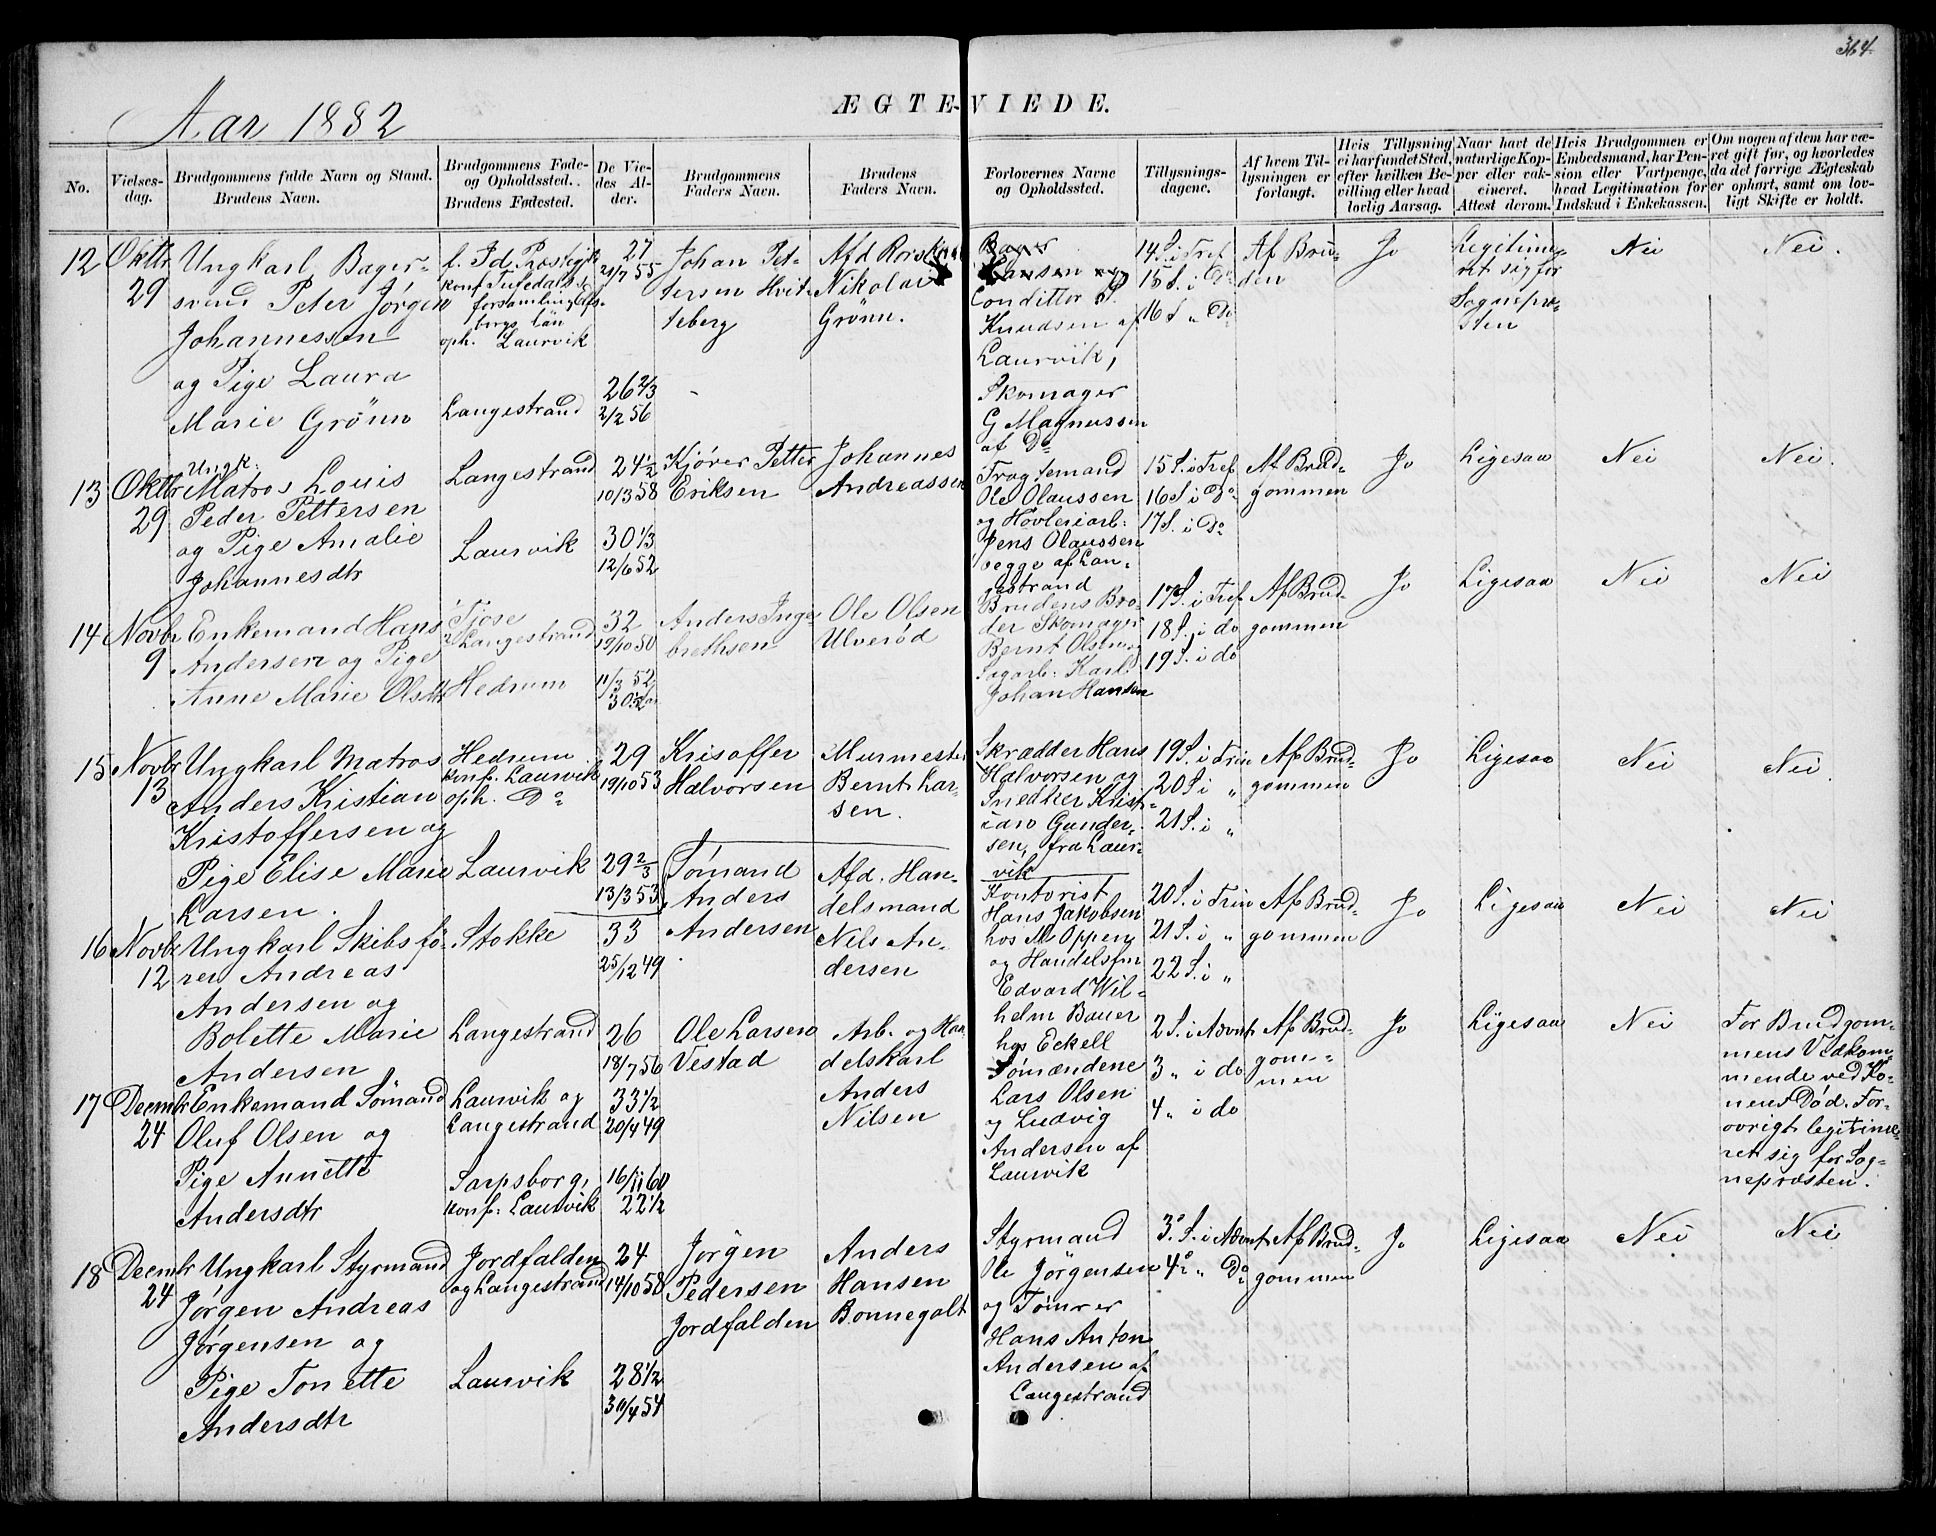 364
Aar 1882
ÆGTEVIEDE.
No.
Vielses-
dag.
Brudgommens fulde Navn og Stand.
Brudens Navn.
Brudgommens Føde-
og Opholdssted.
Brudens Fødested.
De Vie-
des Al-
der.
Brudgommens
Faders Navn.
Brudens
Faders Navn.
Forlovernes Navne
og Opholdssted.
Tillysnings-
dagene.
Af hvem Til-
lysningen er
forlangt.
Hvis Tillysning
ei har fundet Sted,
efter hvilken Be-
villing eller hvad
lovlig Aarsag.
Naar havt de
naturlige Kop-
per eller vak-
cineret.
Attest derom.
Hvis Brudgommen er
Embedsmand, har Pen-
sion eller Vartpenge,
hvad Legitimation for
Indskud i Enkekassen.
Om nogen af dem har væ-
ret gift før, og hvorledes
da det forrige Ægteskab
er ophørt, samt om lov-
ligt Skifte er holdt.
12
Oktbr
29
Ungkarl Bager-
svend Peter Jørgen
Johannessen
og Pige Laura
Marie Grönn
f. Id Præstegj.
konf.
forsamling
bergs län
oph. Laurvik
Langestrand
27
21/7 55
26 2/3
2/2 56
Johan Pet-
tersen Hvit-
teberg
Afd
Nikolai
Grönn.
Bager
Hansen og
Conditter P.
Knudsen af
Laurvik,
Skomager
G Magnussen
af Do
14 S. i Tref
15 S. i Do
16 S " Do
Af Bru-
den
Jo
Legitime-
ret sig for
Sognepræ-
sten
Nei
Nei.
13
Oktbr
29
Ungk.
Matros Louis
Peder Pettersen
og Pige Amalie
Johannesdtr
Langestrand
Laurvik
24 1/2
10/3 58
30 1/3
12/6 52
Kjörer Petter
Eriksen
Johannes
Andreassen
Fragtemand
Ole Olaussen
og Høvleriarb:
Jens Olaussen
begge af Lan-
gestrand
15 S. i Tref
16 S i Do
17 S. i Do
Af Brud-
gommen
Jo
Ligesaa
Nei
Nei.
14
Novbr
9
Enkemand Hans
Andersen og Pige
Anne Marie Olsdtr
Tjöse
Langestrand
Hedrum
32
19/10 50
11/3 52
30
Anders Inge-
brethsen
Ole Olsen
Ulveröd
Brudens Bro-
der Skomager
Bernt Olsen og
Sagarb: Karl
Johan Hansen
17 S. i Tref
18 S. i do
19 S. i do
Af Brud-
gommen
Jo
Ligesaa
Nei
Nei
15
Novbr
13
Ungkarl Matros
Anders Kristian
Kristoffersen og
Pige Elise Marie
Larsen.
Hedrum
konf. Laurvik
oph. Do
Laurvik
29
19/10 53
29 2/3
13/3 53
Krisoffer
Halvorsen
Murmester
Bernt Lar-
sen.
Skrædder Hans
Halvorsen og
Snedker Krist-
ian Gunder-
sen, fra Laur-
vik
19 S. i Trin
20 S i "
21 S. i "
Af Brud-
gommen
Jo
Ligesaa
Nei
Nei.
16
Novbr
12
Ungkarl Skibsfö-
rer Andreas
Andersen og
Bolette Marie
Andersen
Stokke
Langestrand
33
25/12 49
26
18/7 56
Sömand
Anders
Andersen
Afd. Han-
delsmand
Nils An-
dersen
Kontorist
Hans Jakobsen
hos M. Oppen
og Handelsfm
Edvard Wil-
helm Bauer
hos Eckell
20 S. i Trin
21 S. i "
22 S. i "
Af Brud-
gommen
Jo
Ligesaa
Nei
Nei
17
Decmbr
24
Enkemand Sömand
Oluf Olsen og
Pige Annette
Andersdtr
Laurvik og
Langestrand
Sarpsborg,
konf. Laurvik
33 1/2
20/4 49
16/11 60
22 1/2
Ole Larsen
Vestad
Arb. og Han-
delskarl
Anders
Nilsen
Sömændene
Lars Olsen
og Ludvig
Andersen af
Laurvik
2 S. i Advnt
3 " i do
4 " i do
Af Brud-
gom-
men
Jo
Ligesaa
Nei
For Brudgom-
mens Vedkom-
mende ved Ko-
nens Död. For-
övrigt legitime-
ret sig for Sog-
nepræsten.
18
Decmbr
24
Ungkarl Styrmand
Jørgen Andreas
Jørgensen og
Pige Tonette
Andersdtr
Jordfalden
og Langestrand
Laurvik
24
14/10 58
28 1/2
30/4 54
Jørgen
Pedersen
Jordfalden
Anders
Hansen
Bonnegolt
Styrmand
Ole Jörgensen
og Tömrer
Hans Anton
Andersen af
Langestrand
3 S. i Advnt
4 " Do
Af Brud-
gommen
Jo
Ligesaa
Nei
Nei